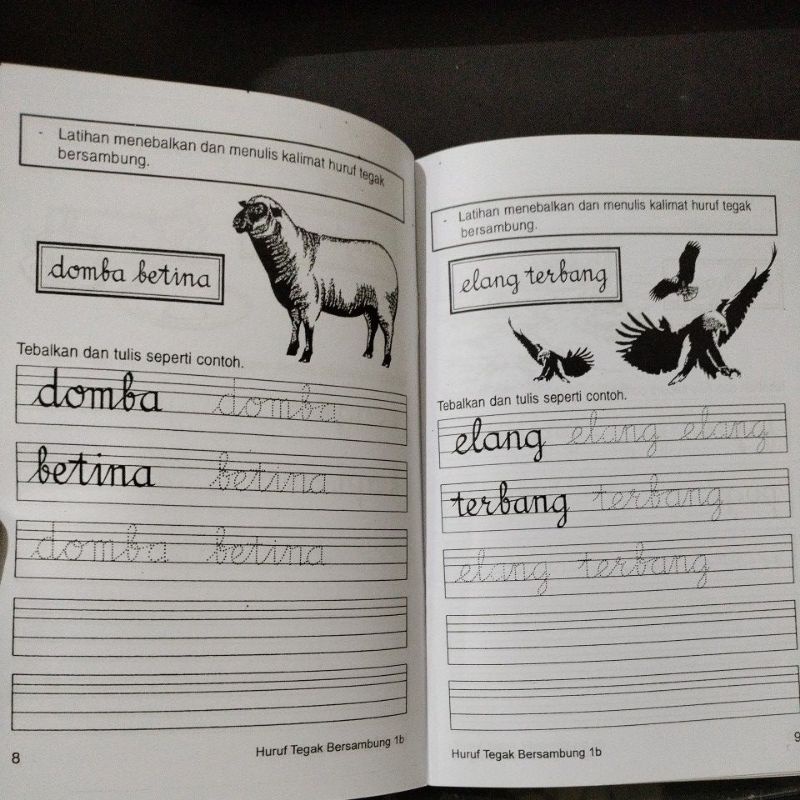 - Latihan menebalkan dan menulis kalimat huruf tegak
bersambung.
domba betina
Tebalkan dan tulis seperti contoh.
domba domba
betina betina
domba betina
8
Huruf Tegak Bersambung 1b
- Latihan menebalkan dan menulis kalimat huruf tegak
bersambung.
elang terbang
Tebalkan dan tulis seperti contoh.
elang elang elang
terbang terbang
elang terbang
Huruf Tegak Bersambung 1b
9